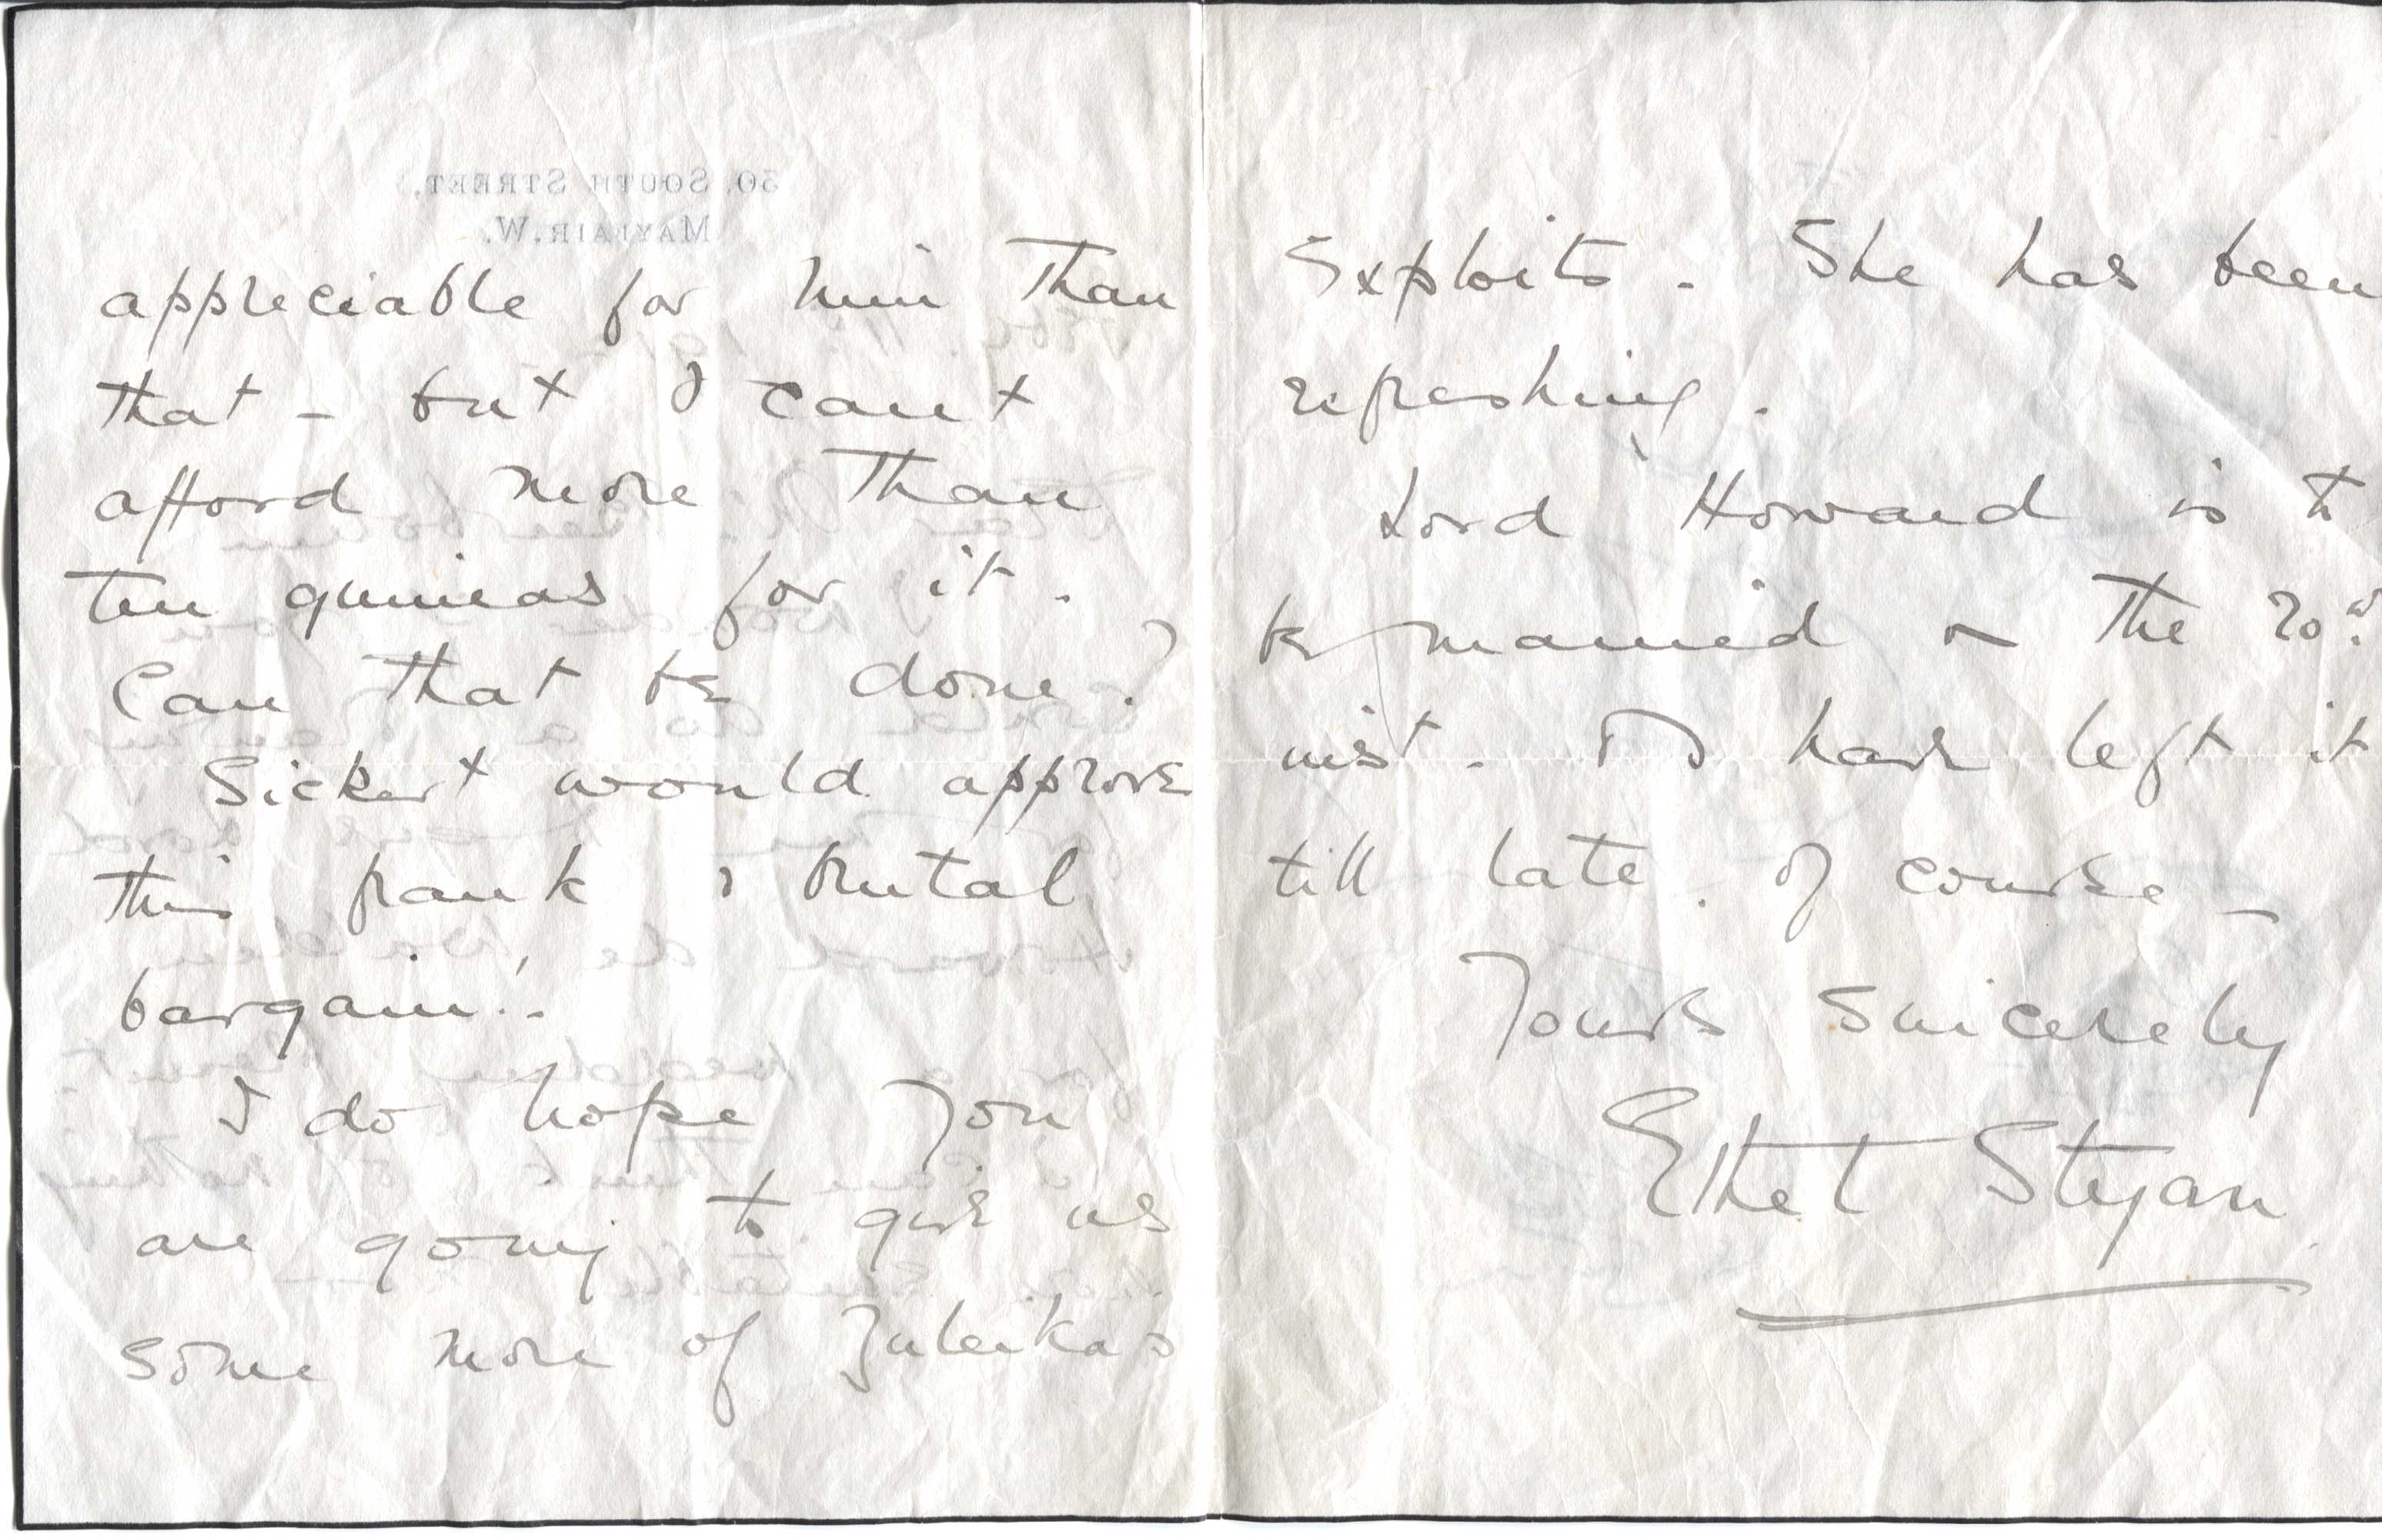 30, South Street,
Mayfair. W.
appreciable for him than
that – but I cant
afford more than
ten guineas for it.
Can that be done?
Sickert would approve
this frank & brutal
bargain!.
I do hope you
are going to give us
some more of Zuleikas
Exploits. She has been
refreshing.
Lord Howard is to
be married on the 20th
inst. I've left it
till late, of course –
Yours sincerely
Ethel Styan